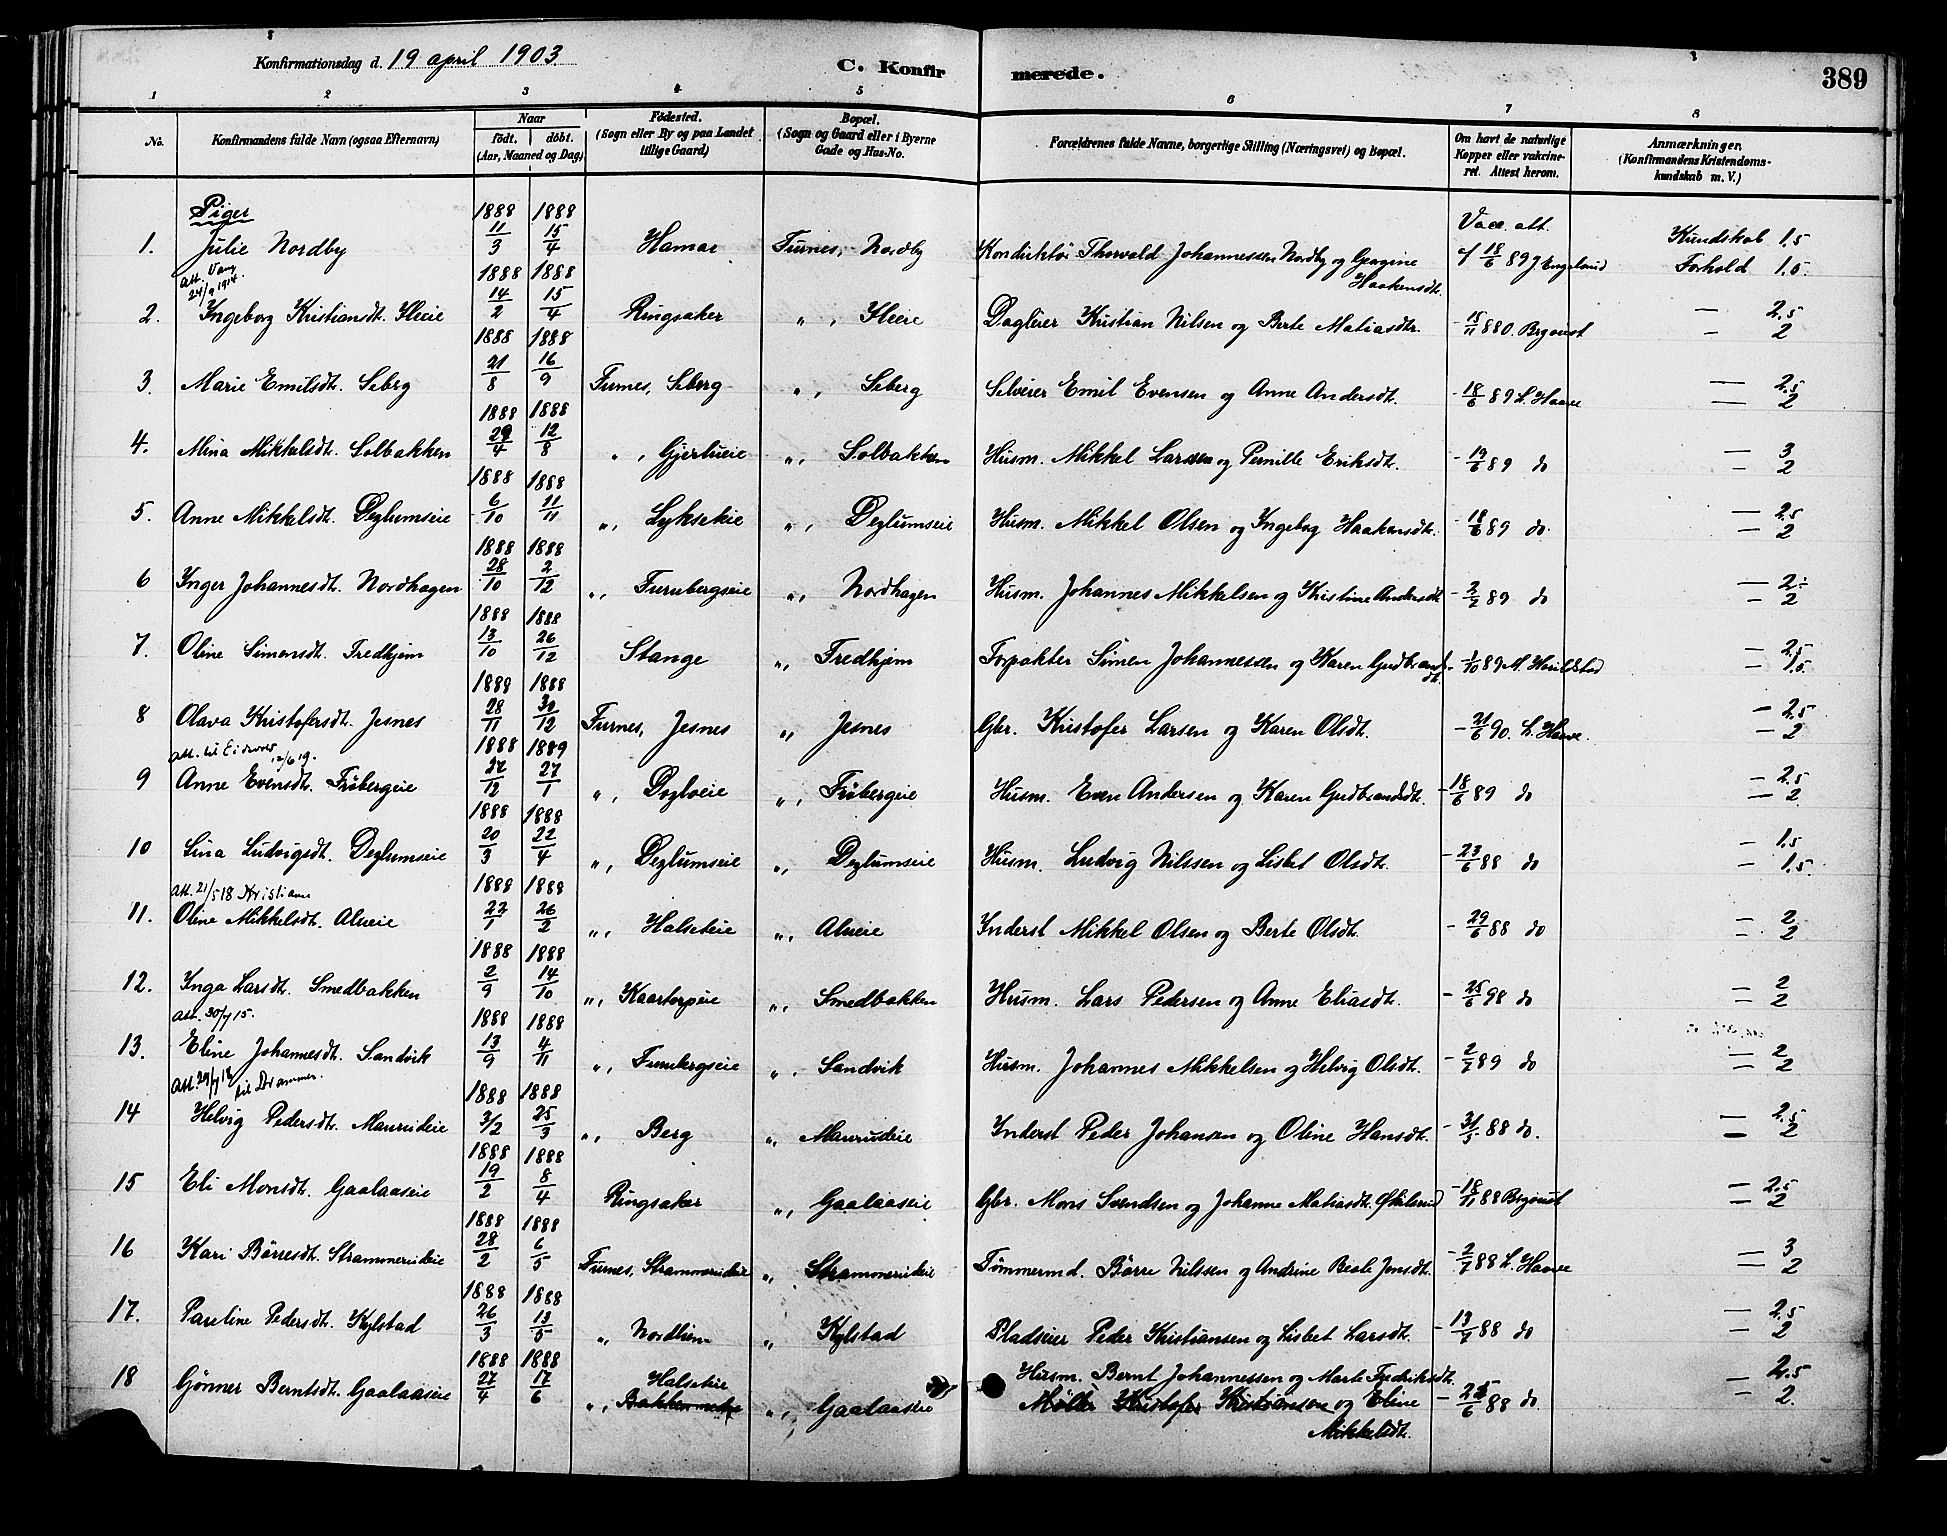 Konfirmationsdag d. 19 april 1903.
C. Konfirmerede.
389
1 2 3 4 5 6 7 8
No. Konfirmandens fulde Navn (ogsaa Efternavn) Naar födt, döbt. (Aar, Maaned og Dag) Födested. (Sogn eller By og paa Landet tillige Gaard) Bopæl. (Sogn og Gaard eller i Byerne Gade og Hus-No. Forældrenes fulde Navne, borgerlige Stilling (Næringsvei) og Bopæl. Om havt de naturlige Kopper eller vakcineret. Attest herom. Anmærkninger. (Konfirmandens Kristendomskundskab m. V.)
Piger
1. Julie Nordby 1888 11/3 1888 15/4 Hamar Furnes, Nordby Konduktör Thorvald Johannessen Nordby og Georgine Haakensdt. Vacc. att. 18/6 89 J Engelund Kundskab 1.5 Forhold 1.5
att. Vang 24/9 1914
2. Ingeborg Kristiansdt. Sleie 1888 14/2 1888 15/4 Ringsaker " , Daglejer Kristian Nilsen og Berte Matiasdtr. - 15/11 880. — 2.5 - 2
3. Marie Emilsdt. Seberg 1888 21/8 1888 16/9 Furnes, Seberg " , Seberg Selveier Emil Evensen og Anne Andersdt. - 18/6 89 L. Haave — 2.5 — 2
4. Mina Mikkelsdt. Solbakken 1888 29/4 1888 12/8 " , Gjerlueie " , Solbakken Husm. Mikkel Larssen og Pernille Eriksdt. - 19/6 89 do — 3 - 2
5. Anne Mikkelsdt. Deglumseie 1888 6/10 1888 11/11 " , Lykseteie " , Deglumseie Husm. Mikkel Olsen og Ingeborg Haakensdt. - 18/6 89 do — 2.5 — 2
6 Inger Johannesdt. Nordhagen 1888 28/10 1888 2/12 " , Furubergseie " , Nordhagen Husm. Johannes Mikkelsen og Kristine Andersdt - 2/7 89 do — 2÷ — 2
7. Oline Simensdt. Fredhjem 1888 13/10 1888 26/12 Stange " , Fredhjem Forpakter Simen Johannessen og Karen Gudbrandsdt. - 1/10 89 M. — 2.5 — 1.5
8 Olava Kristofersdt. Jesnes 1888 28/11 1888 30/12 Furnes, Jesnes " Jesnes Gbr. Kristofer Larsen og Karen Olsdt. - 21/6 90. L. Haave. — 2.5 — 2
att. til Eidsvol 12/6 19.
9 Anne Evensdt. Fröbergeie 1888 27/12 1889 27/1 " , Dogloeie " , Fröbergeie Husm. Even Andersen og Karen Gudbrandsdt. - 18/6 89 do — 2.5 — 2
10 Lina Ludvigsdt. Deglumseie 1888 20/3 1888 22/4 " , Deglumseie " , Deglumseie Husm. Ludvig Nilssen og Lisbet Olsdt. - 23/6 88 do — 1.5 — 1.5
att. 21/5 18 Kristiania
11. Oline Mikkelsdt. Alueie 1888 22/1 1888 26/2 " , Halseteie " , Alueie Inderst Mikkel Olsen og Berte Olsdt - 29/6 88 do — 2 — 2
12. Inga Larsdt. Smedbakken 1888 2/9 1888 14/10 " , Kaartorpeie " , Smedbakken Husm. Lars Pedersen og Anne Eliasdt. - 25/6 98 do — 2 — 2
att. 30/7 15.
13. Eline Johannesdt. Sandvik 1888 13/9 1888 4/11 " , Furubergseie " , Sandvik Husm. Johannes Mikkelsen og Helvig Olsdt. - 2/7 89 do — 2 — 2
att. 29/7 18 til Drammen.
14 Helvig Pedersdt. Maurudeie 1888 3/2 1888 25/3 " , Berg " , Maurudeie Inderst Peder Johansen og Oline Hansdt. - 31/5 88 do. — 2.5 — 2
15 Eli Monsdt. Gaalaaseie 1888 19/2 1888 8/4 Ringsaker " , Gaalaaseie Gbr. Mons Svendsen og Johanne Matiasdt. - 18/11 88 — 2.5 — 2
16 Kari Börresdt. Strammerudeie 1888 28/2 1888 6/5 Furnes, Strammerudeie " , Strammerudeie Tömmermd. Börre Nilssen og Andrine Beate Jonsdt. - 2/7 88 L. Haave — 3 — 2
17. Pauline Pedersdt. Kylstad 1888 26/3 1888 13/5 " Nordliem " Kylstad Pladseier Peder Kristiansen og Lisbet Larsdt. - 13/7 88 do — 2.5 — 2
18 Gönner Berntsdt. Gaalaaseie 1888 27/4 1888 17/6 Halseteie " , " , Gaalaaseie Husm. Bernt Johannessen og Marte Fredriksdt. - 25/6 88 do — 2.5 — 2.
Möller Kristofer Kristiansen og Eline Mikkelsdt.